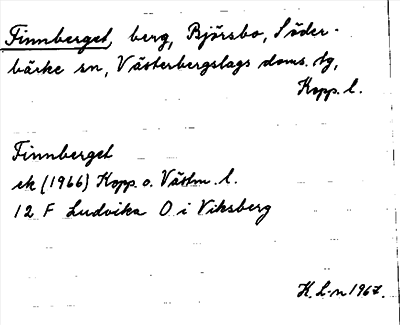 Finnberget, berg, Björsbo, Söder-
bärke sn, Västerbergslags doms. tg,
Kopp. l.
Finnberget
ek (1966) Kopp. o. Västm. l.
12 F Ludvika O i Viksberg
K. L-n 1967.